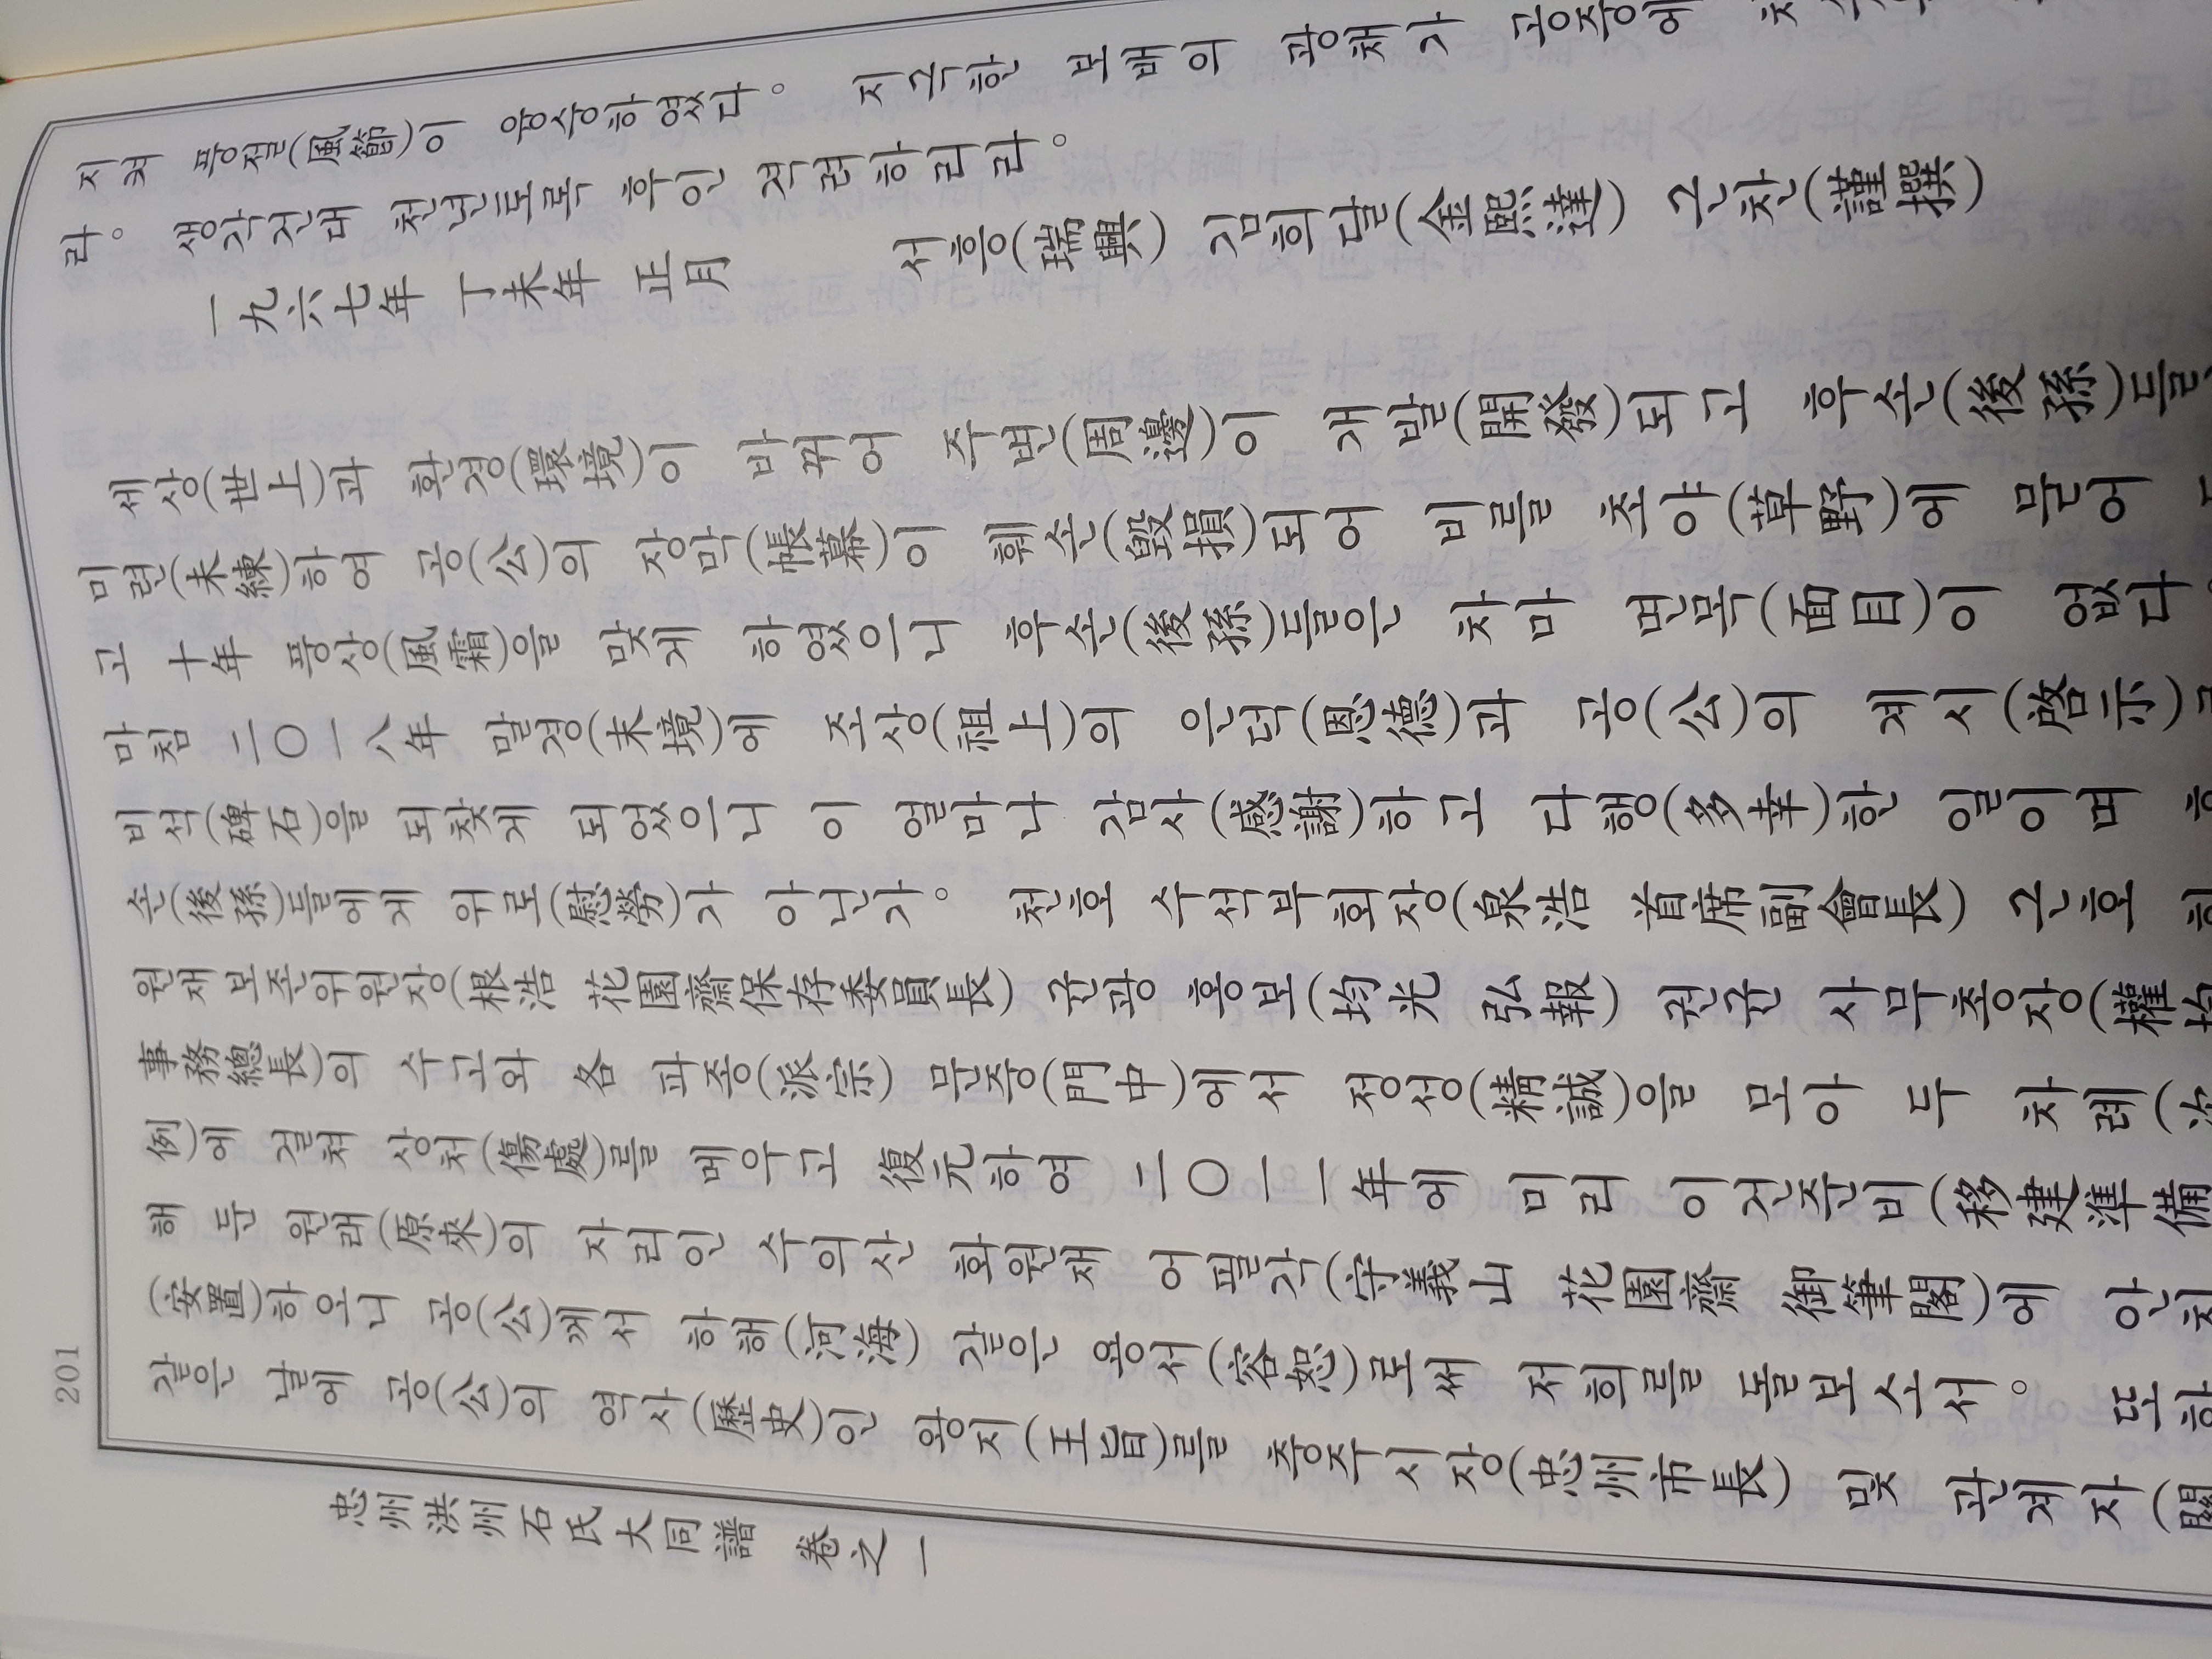 지켜 풍절(風節)이 융숭하였다。 지극한 보배의 광채가 공중에
라。 생각건대 천년토록 후인 격려하리라。
一九六七年 丁未年 正月 서흥(瑞興) 김희달(金熙達) 근찬(謹撰)
세상(世上)과 환경(環境)이 바뀌어 주변(周邊)이 개발(開發)되고 후손(後孫)들
미련(未練)하여 공(公)의 장막(帳幕)이 훼손(毁損)되어 비를 초야(草野)에 묻어
고 十年 풍상(風霜)을 맞게 하였으니 후손(後孫)들은 차마 면목(面目)이 없다
마침 二〇一八年 말경(末境)에 조상(祖上)의 은덕(恩德)과 공(公)의 계시(啓示)로
비석(碑石)을 되찾게 되었으니 이 얼마나 감사(感謝)하고 다행(多幸)한 일이며 후
손(後孫)들에게 위로(慰勞)가 아닌가。 천호 수석부회장(泉浩 首席副會長) 근호 화
원재 보존위원장(根浩 花園齋保存委員長) 균광 홍보(均光 弘報) 권균 사무총장(權均
事務總長)의 수고와 各 파종(派宗) 문중(門中)에서 정성(精誠)을 모아 두 차례(次
例)에 걸쳐 상처(傷處)를 메우고 復元하여 二〇一一年에 미리 이건준비(移建準備
해 둔 원래(原來)의 자리인 수의산 화원재 어필각(守義山 花園齋 御筆閣)에 안치
(安置)하오니 공(公)께서 하해(河海) 같은 용서(容恕)로써 저희를 돌보소서。 또한
같은 날에 공(公)의 역사(歷史)인 왕지(王旨)를 충주시장(忠州市長) 및 관계자(關
忠州洪州石氏大同譜 卷之一
201